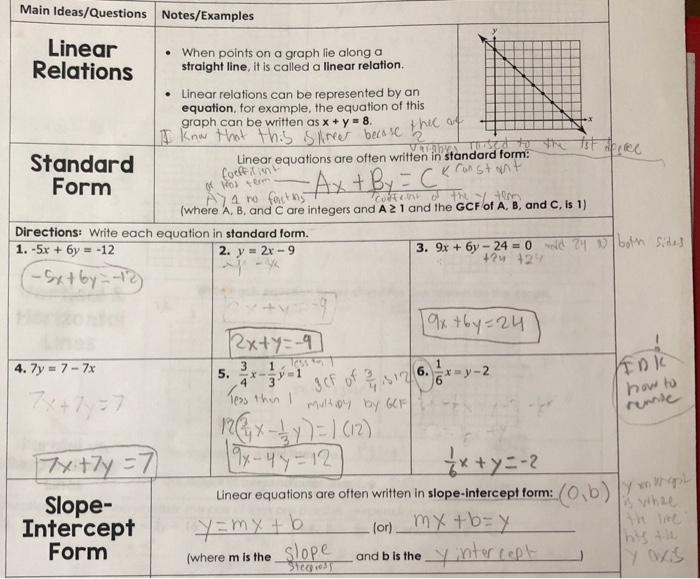 Main Ideas/Questions Notes/Examples
Linear
Relations
• When points on a graph lie along a
straight line, it is called a linear relation.
• Linear relations can be represented by an
equation, for example, the equation of this
graph can be written as x + y = 8.
y
x
I know that this is linear becase thee
Variables raised to the 1st degree
Standard
Form
Linear equations are often written in standard form:
coefficient
of the x term
Ax + By = C
constant
A ≥ 1 no fractions
coefficient of the y term
(where A, B, and C are integers and A ≥ 1 and the GCF of A, B, and C, is 1)
Directions: Write each equation in standard form.
1. -5x + 6y = -12
-5x+6y=-12
2. y = 2x - 9
2x+y=-9
3. 9x + 6y - 24 = 0
add 24 to both sides
+24 +24
9x+6y=24
4. 7y = 7 - 7x
7x+7y=7
7x+7y=7
5. 3/4x - 1/3y = 1
less than 1
less than 1
gcf of 3/4 is 12
multiply by GCF
12(3/4x-1/3y)=1(12)
9x-4y=12
6. 1/6x = y - 2
1/6x+y=-2
IDK
how to
Slope-
Intercept
Form
Linear equations are often written in slope-intercept form: (0,b)
y=mx+b (or) mx+b=y
(where m is the slope and b is the y intercept)
steepness
y intercept
is where
the line
hits the
y axis